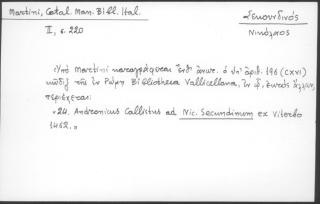 Martini, Catal. Man. Bibl. Ital.
II, σ. 220
Σεκουνδινός
Νικόλαος
Ὑπὸ Martini καταγράφεται ἔνθ' ἀνωτ. ὁ ὑπ' ἀριθ. 196 (CXVI)
κῶδιξ τῆς ἐν Ρώμῃ Bibliotheca Vallicellana, ἐν ᾧ, ἐκτὸς ἄλλων,
περιέχεται:
«24. Andronicus Callistus ad Nic. Secundinum ex Viterbo
1462.»